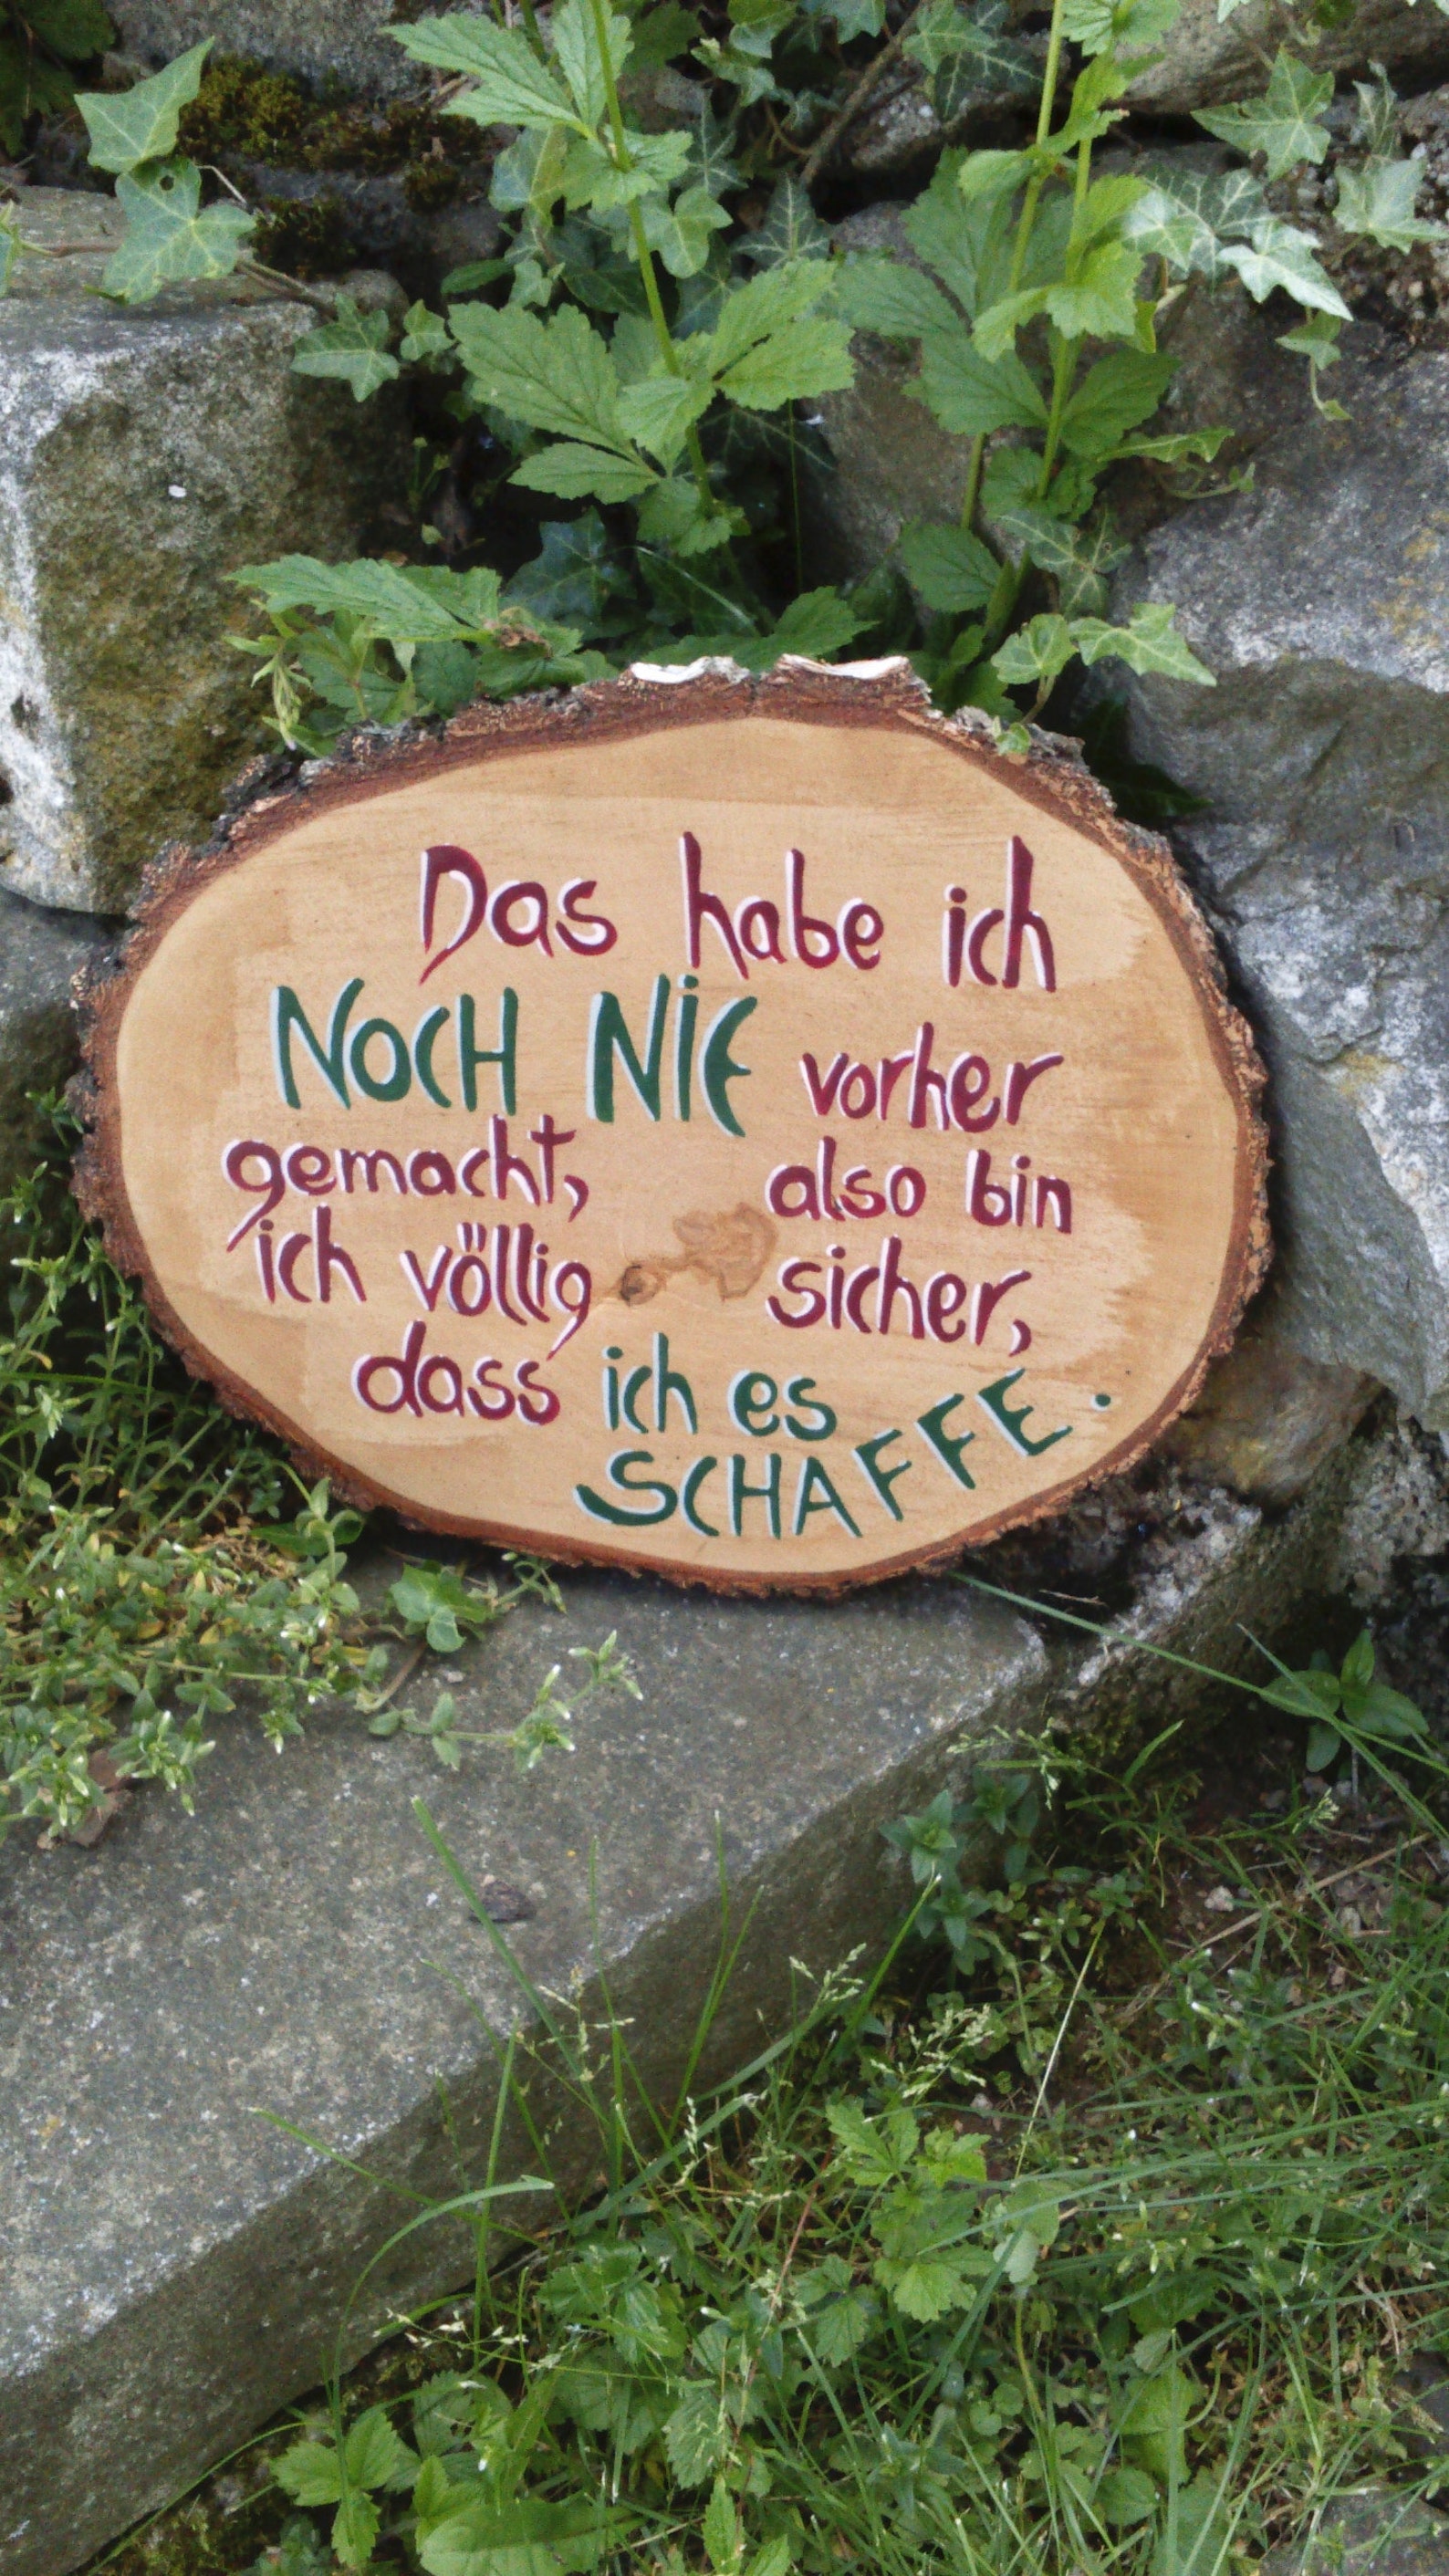 Das habe ich
NOCH NIE vorher
gemacht, also bin
ich völlig sicher,
dass ich es
SCHAFFE.